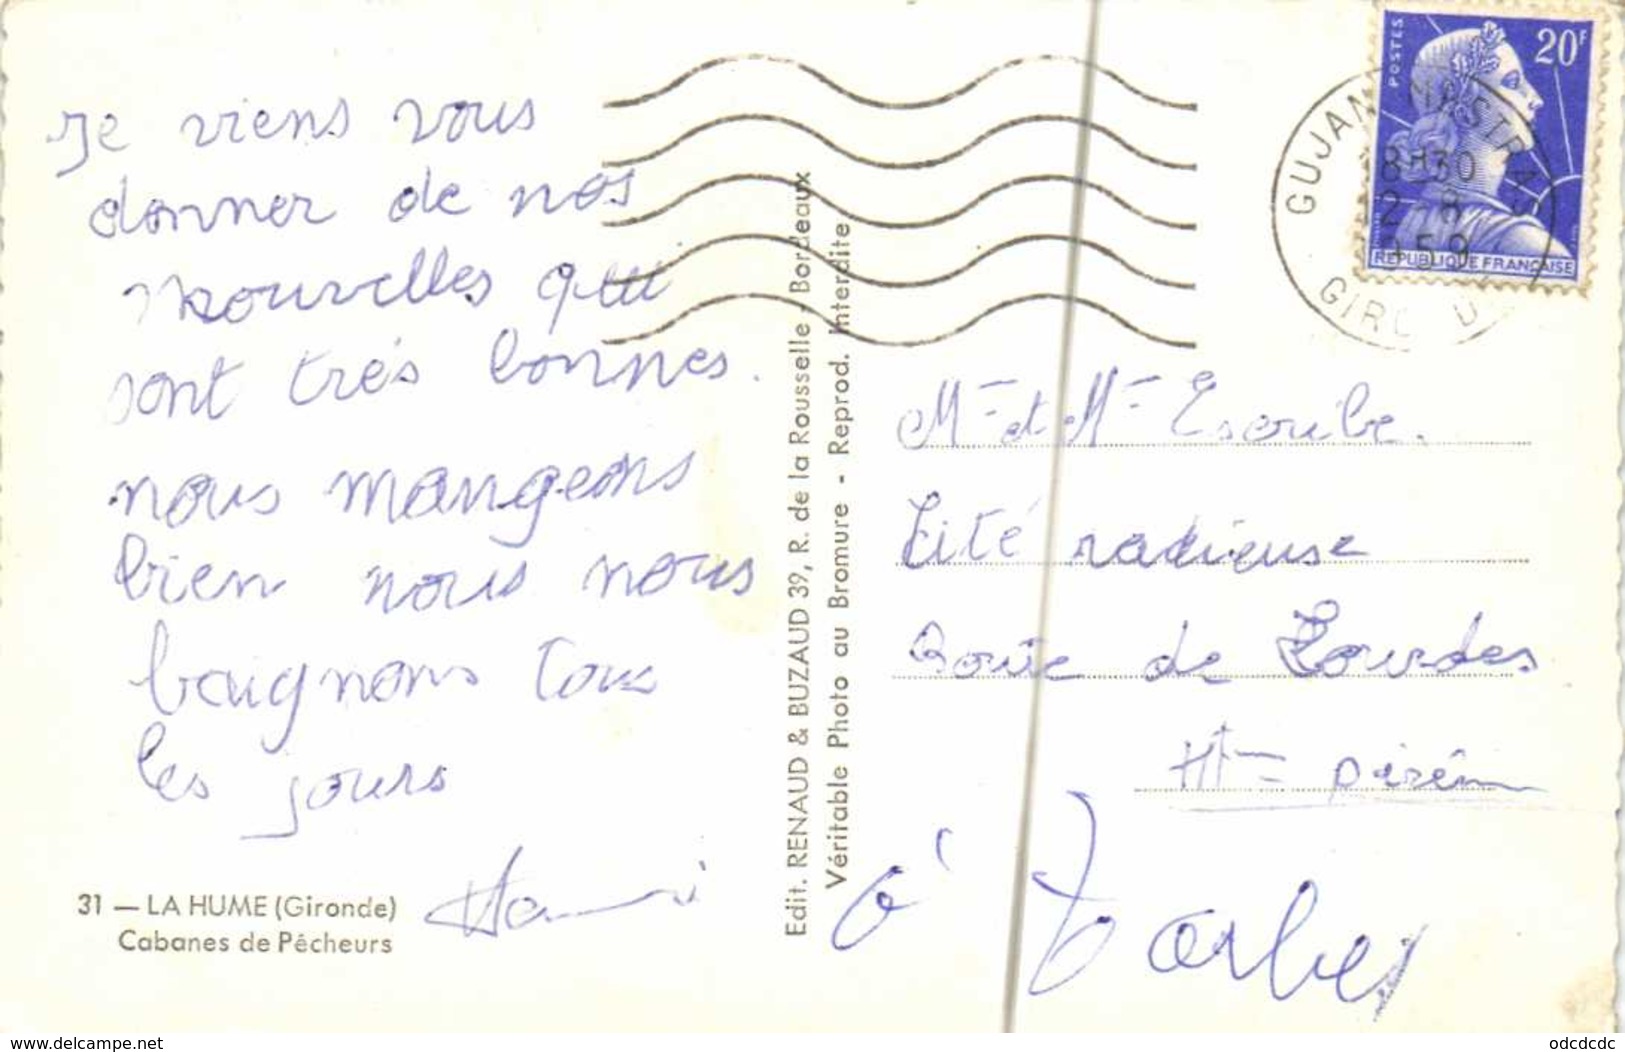 Je viens vous
donner de nos
nouvelles qui
sont très bonnes.
nous mangeons
bien nous nous
baignons tous
les jours
31 — LA HUME (Gironde)
Cabanes de Pêcheurs
Edit. RENAUD & BUZAUD 39, R. de la Rousselle - Bordeaux
Véritable Photo au Bromure - Reprod. Interdite
POSTES
20F
REPUBLIQUE FRANÇAISE
GUJAN MESTRAS
8H30
2-8
1959
GIRONDE
Mr et Mme Escribe.
Cité radieuse
Route de Lourdes
Htes
à Tarbes
delcampe.net
odcdcdc